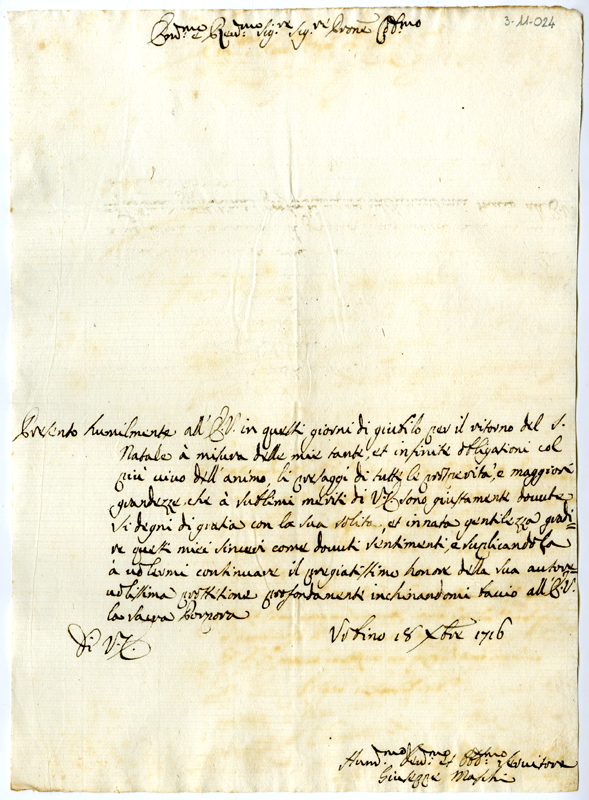 3-11-024
Em.mo e Rev.mo Sig.re Sig.re Prone Col.mo
Presento humilmente all'E.V. in questi giorni di giubilo per il ritorno del S.
Natale à misura delle mie tante, et infinite obligationi col
più vivo dell'animo, li presaggi di tutte le prosperità, e maggiori
grandezze, che à sublimi meriti di V.E. sono giustamente dovute
Si degni di gratia con la sua solita, et innata gentilezza gradi=
re questi miei sinceri come dovuti sentimenti, e suplicandola
à volermi continuare il pregiatissimo honore della sua autore=
volissima protetione profondamente inchinandomi bacio all'E.V.
la sacra Porpora
Di V.E. Urbino 18 Xbre 1716
Hum.mo Dev.mo et Obb.mo Servitore
Giuseppe Maschi